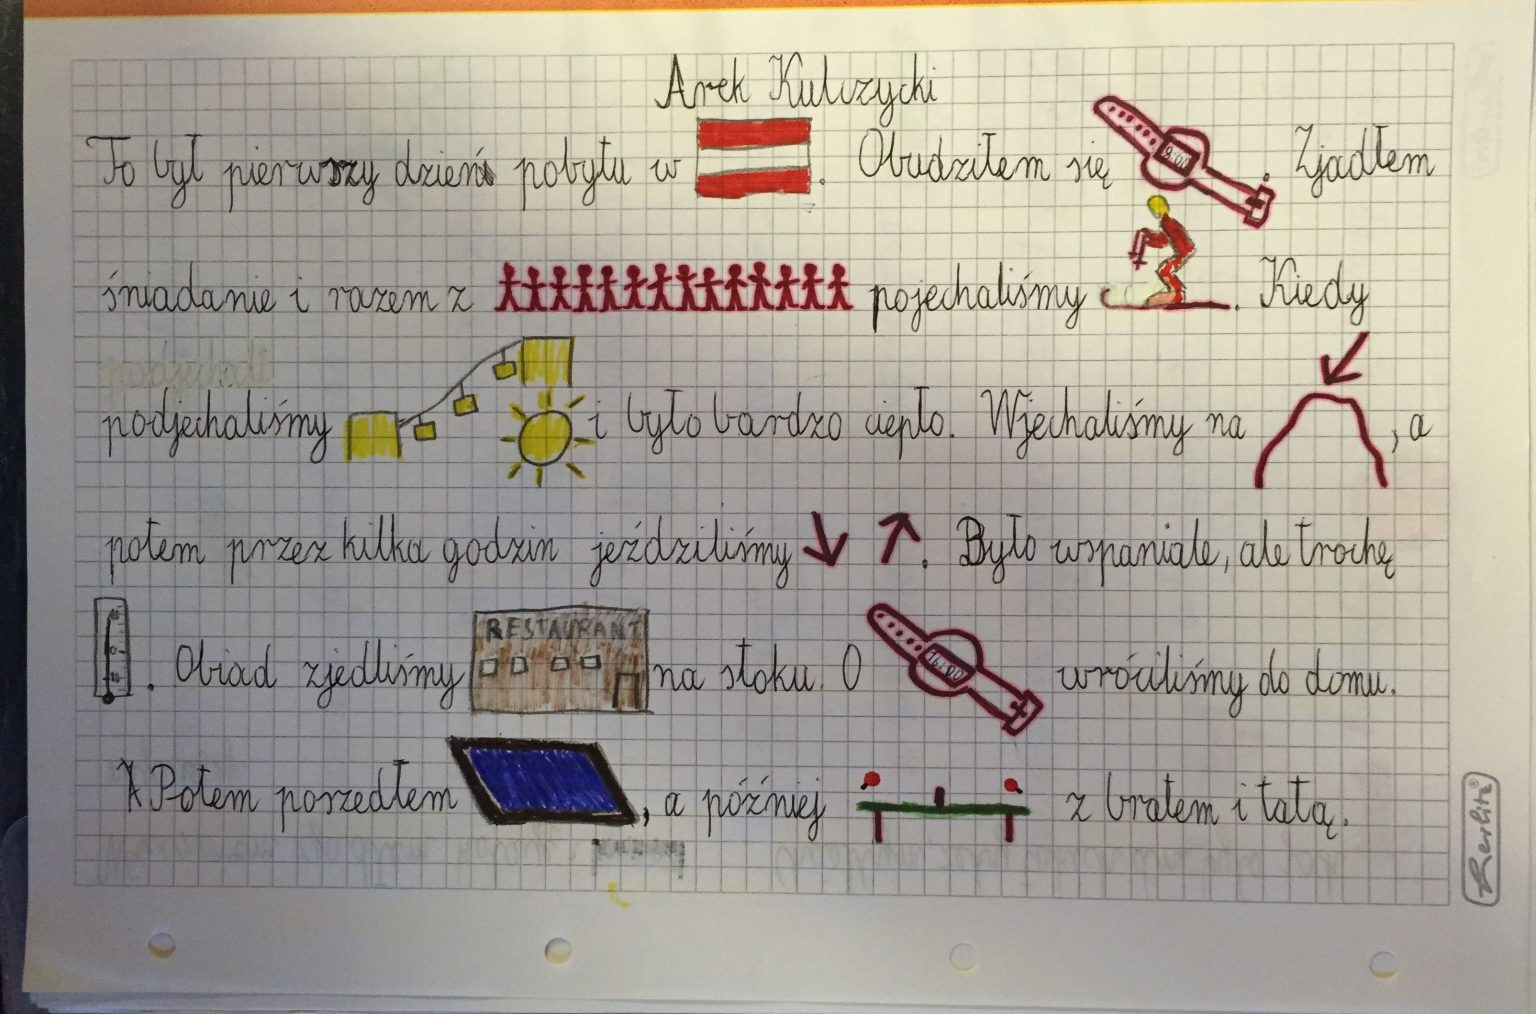 Arek Kulczycki
To był pierwszy dzień pobytu w . Obudziłem się 9:00 . Zjadłem
śniadanie i razem z pojechaliśmy . Kiedy
podjechaliśmy i było bardzo ciepło. Wjechaliśmy na , a
potem przez kilka godzin jeździliśmy . Było wspaniale, ale trochę
. Obiad zjedliśmy RESTAURANT na stoku. O 16:00 wróciliśmy do domu.
A Potem poszedłem , a później z bratem i tatą.
Berlitz